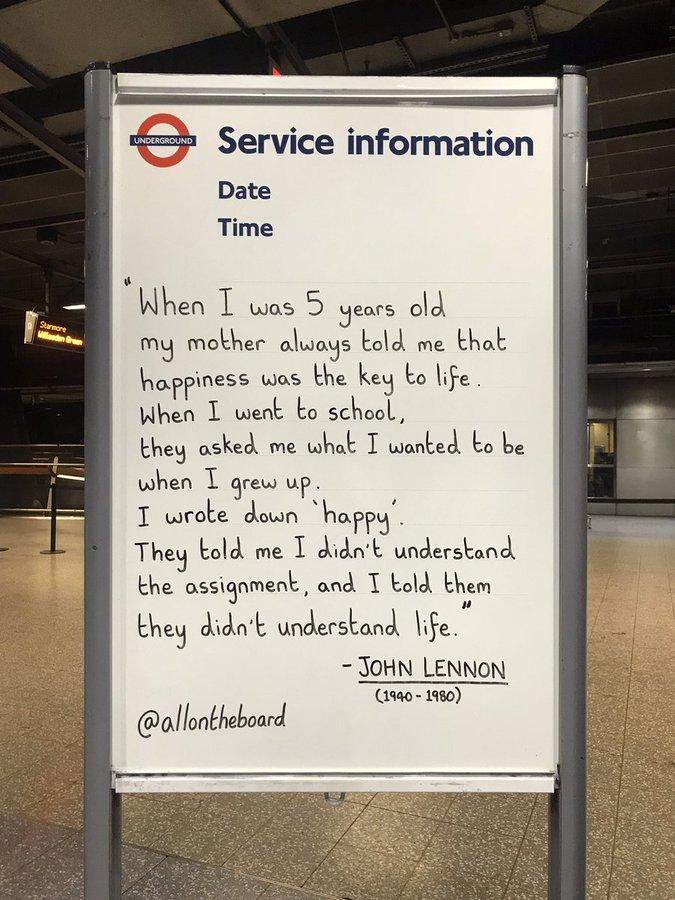 UNDERGROUND
Service information
Date
Time
"When I was 5 years old
my mother always told me that
happiness was the key to life.
When I went to school,
they asked me what I wanted to be
when I grew up.
I wrote down 'happy'.
They told me I didn't understand
the assignment, and I told them
they didn't understand life."
- JOHN LENNON
(1940 - 1980)
@allontheboard
Stanmore
Willesden Green